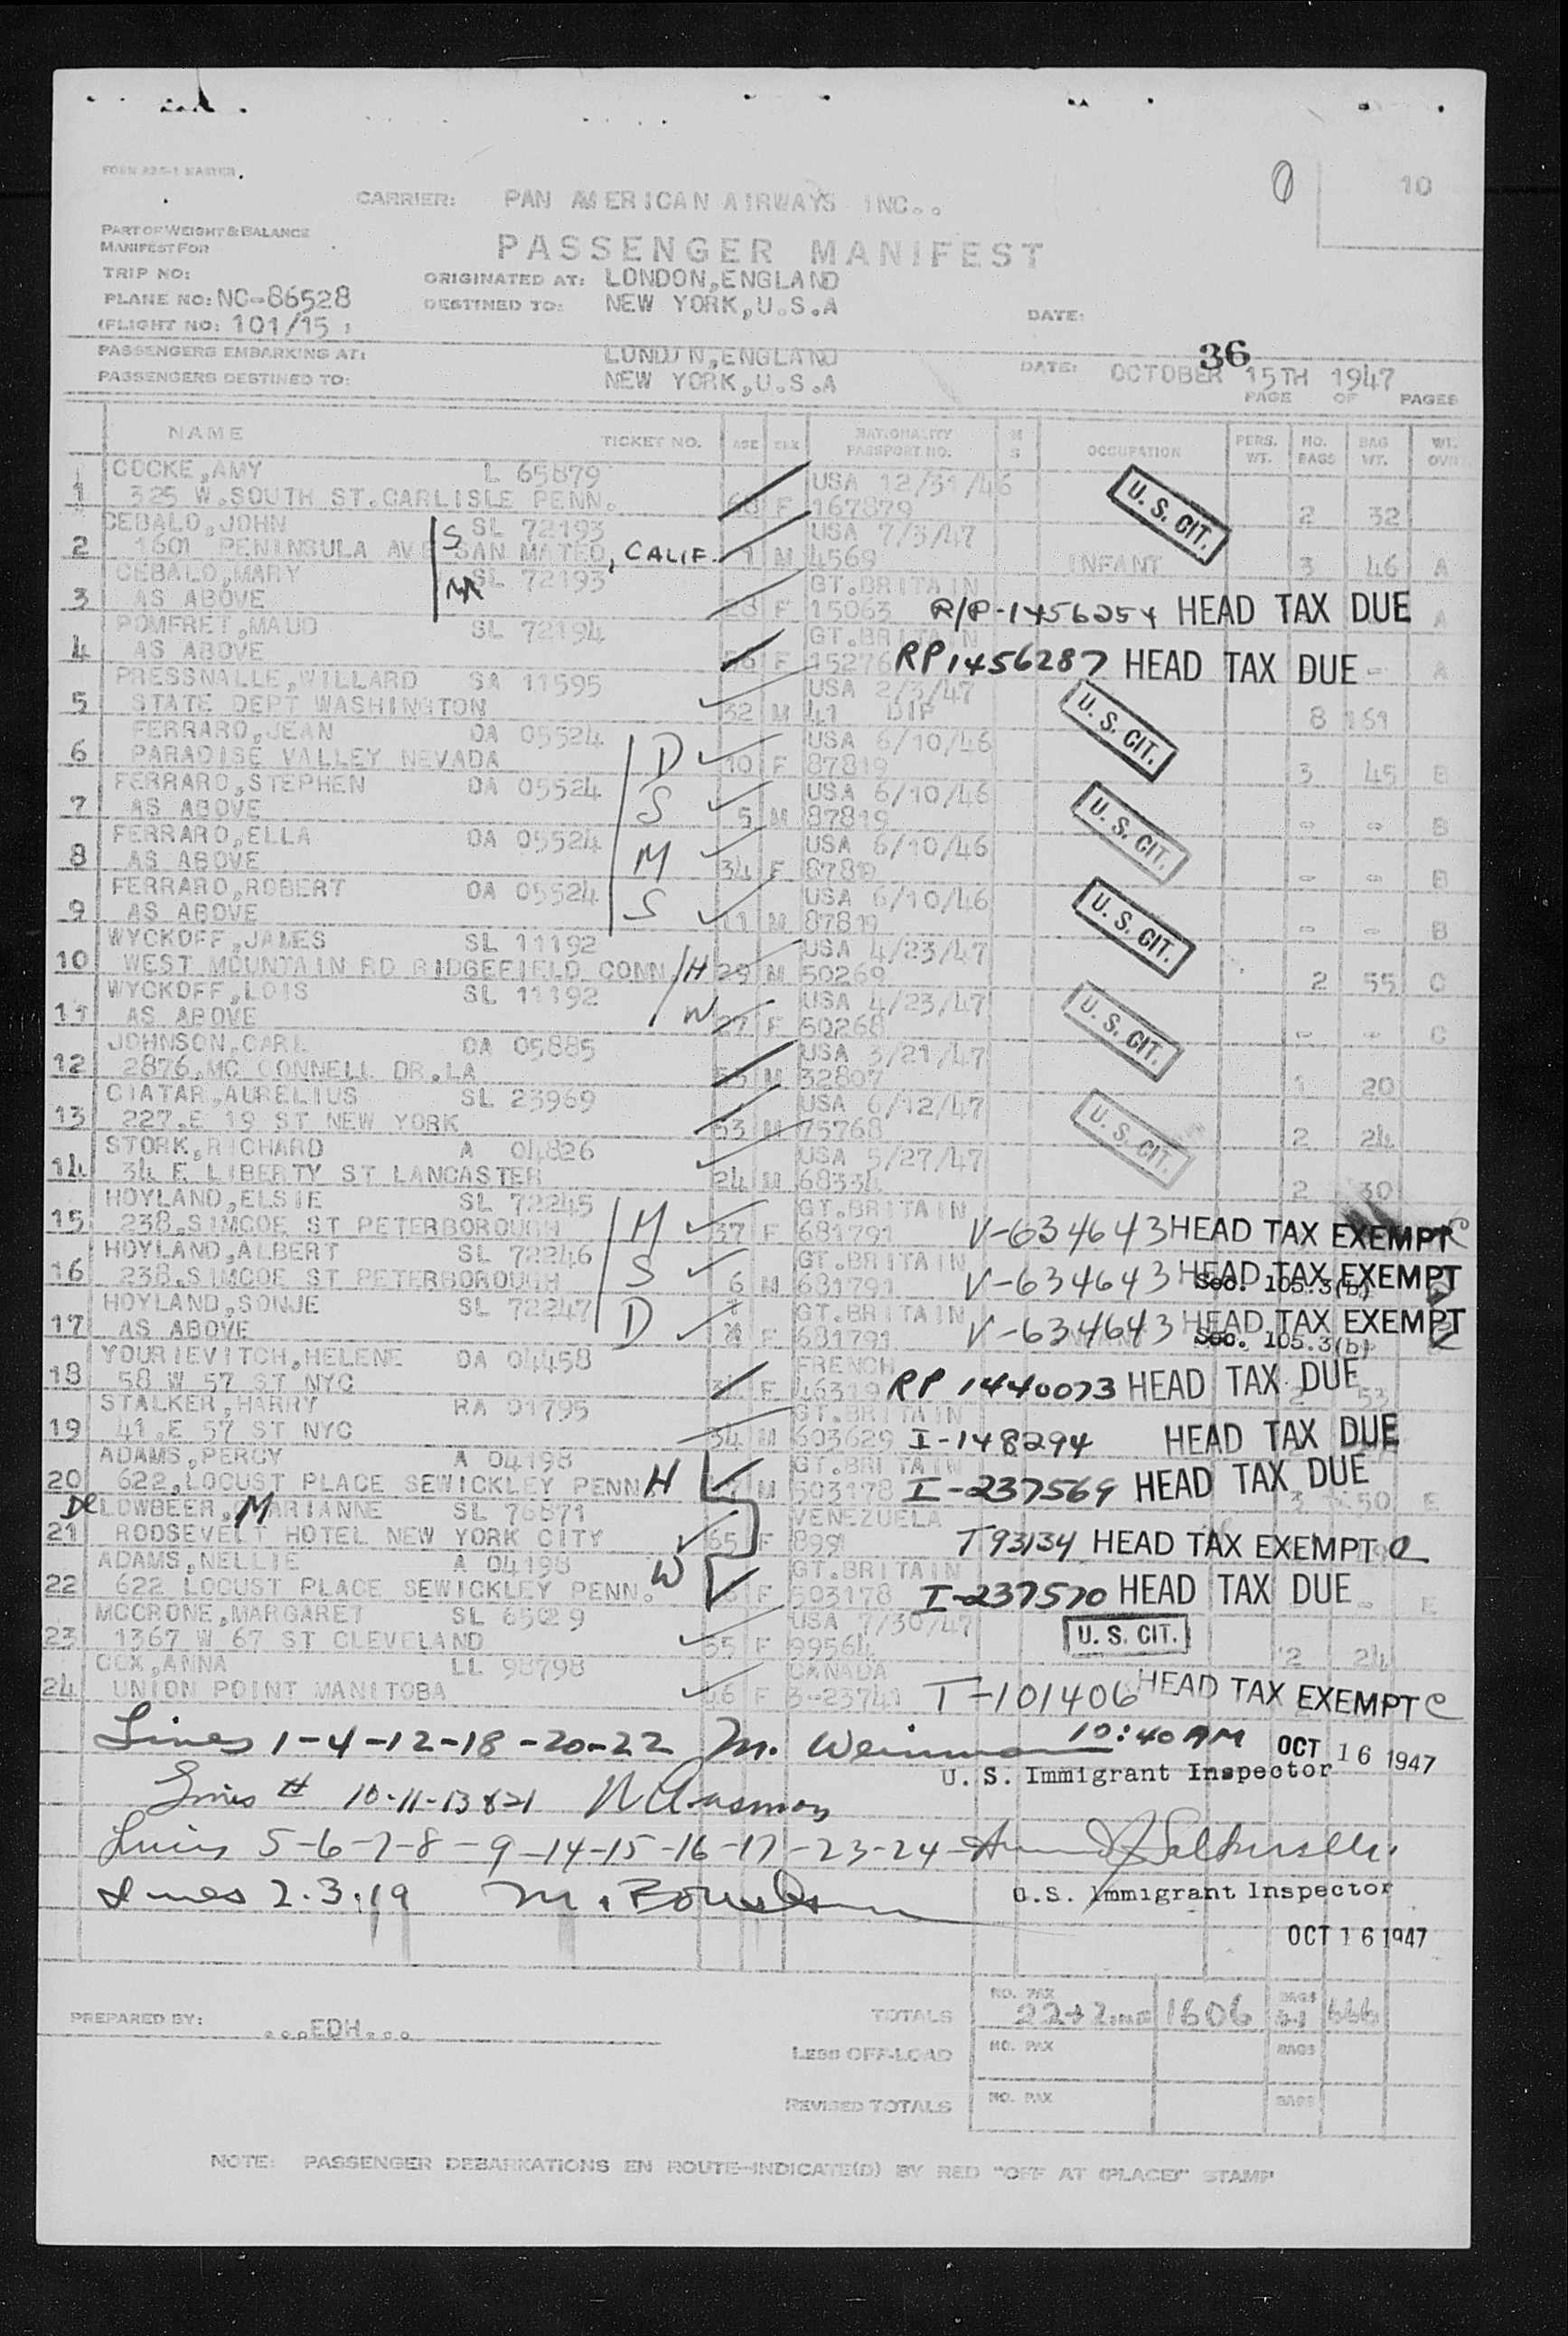 FORM 325-1 MASTER.
CARRIER: PAN AMERICAN AIRWAYS INC..
10
PART OF WEIGHT & BALANCE
MANIFEST FOR
PASSENGER MANIFEST
TRIP NO:
ORIGINATED AT: LONDON,ENGLAND
PLANE NO: NC-86528
DESTINED TO: NEW YORK,U.S.A
DATE:
(FLIGHT NO: 101/15 )
36
PASSENGERS EMBARKING AT: LONDON,ENGLAND
DATE: OCTOBER 15TH 1947
PASSENGERS DESTINED TO: NEW YORK,U.S.A
PAGE OF PAGES
NAME TICKET NO. AGE SEX NATIONALITY PASSPORT NO. M S OCCUPATION PERS. WT. NO. BAGS BAG WT. WT. OVR.
COCKE,AMY L 65879 USA 12/31/46
1 325 W.SOUTH ST.CARLISLE PENN. F 167879 U. S. CIT. 2 32
CEBALD,JOHN S SL 72193 USA 7/3/47
2 1601 PENINSULA AVE SAN MATEO, CALIF. 1 M 4569 INFANT 3 46 A
CEBALD,MARY M SL 72193 GT.BRITAIN
3 AS ABOVE 28 F 15063 R/P-1456254 HEAD TAX DUE A
POMFRET,MAUD SL 72194 GT.BRITAIN
4 AS ABOVE 56 F 15276 RP1456287 HEAD TAX DUE - A
PRESSNALLE,WILLARD SA 11595 USA 2/3/47
5 STATE DEPT WASHINGTON 32 M 41 DIP U. S. CIT. 8 161
FERRARO,JEAN OA 05524 USA 6/10/46
6 PARADISE VALLEY NEVADA D 10 F 87819 3 45 B
FERRARO,STEPHEN OA 05524 USA 6/10/46
7 AS ABOVE S 5 M 87819 U. S. CIT. - - B
FERRARO,ELLA OA 05524 USA 6/10/46
8 AS ABOVE M 34 F 87819 - - B
FERRARO,ROBERT OA 05524 USA 6/10/46
9 AS ABOVE S 11 M 87819 U. S. CIT. - - B
WYCKOFF,JAMES SL 11192 USA 4/23/47
10 WEST MOUNTAIN RD RIDGEFIELD CONN H 29 M 50269 2 55 C
WYCKOFF,LOIS SL 11192 USA 4/23/47
11 AS ABOVE W 27 F 50268 U. S. CIT. - - C
JOHNSON,CARL OA 05885 USA 3/21/47
12 2876,MC CONNELL DR.LA 53 M 32807 1 20
CIATAR,AURELIUS SL 23969 USA 6/12/47
13 227.E 19 ST NEW YORK 53 M 75768 U. S. CIT. 2 24
STORK,RICHARD A 04826 USA 5/27/47
14 34 E LIBERTY ST LANCASTER 24 M 68334 2 30
HOYLAND,ELSIE SL 72245 GT.BRITAIN
15 238,SIMCOE ST PETERBOROUGH M 37 F 681791 V-634643 HEAD TAX EXEMPT C
HOYLAND,ALBERT SL 72246 GT.BRITAIN
16 238,SIMCOE ST PETERBOROUGH S 6 M 681791 V-634643 HEAD TAX EXEMPT
Sec. 105.3(b)
HOYLAND,SONJE SL 72247 GT.BRITAIN
17 AS ABOVE D F 681791 V-634643 HEAD TAX EXEMPT
Sec. 105.3(b)
YOURIEVITCH,HELENE OA 04458 FRENCH
18 58 W 57 ST NYC F 46319 RP 1440073 HEAD TAX DUE 2 53
STALKER,HARRY RA 01795 GT.BRITAIN
19 41.E 57 ST NYC 34 M 603629 I-148294 HEAD TAX DUE
ADAMS,PERCY A 04198 GT.BRITAIN
20 622,LOCUST PLACE SEWICKLEY PENN H M 503178 I-237569 HEAD TAX DUE 3 50 E
De LOWBEER,MARIANNE SL 76871 VENEZUELA
21 ROOSEVELT HOTEL NEW YORK CITY 65 F 899 T93134 HEAD TAX EXEMPT C
ADAMS,NELLIE A 04198 GT.BRITAIN
22 622 LOCUST PLACE SEWICKLEY PENN. W F 503178 I-237570 HEAD TAX DUE - E
MCCRONE,MARGARET SL 65029 USA 7/30/47
23 1367 W 67 ST CLEVELAND 35 F 99564 U. S. CIT. 2 24
COX,ANNA LL 98798 CANADA
24 UNION POINT MANITOBA 46 F 3-23741 T-101406 HEAD TAX EXEMPT C
Lines 1-4-12-18-20-22 M. Weinman 10:40 AM OCT 16 1947
U. S. Immigrant Inspector
Lines # 10-11-13 & 21
Lines 5-6-7-8-9-14-15-16-17-23-24
Lines 2.3.19 M.
U.S. Immigrant Inspector
OCT 16 1947
PREPARED BY: ...EDH...
TOTALS NO. PAX 22+2 1606 BAGS 31 666
LESS OFF-LOAD NO. PAX BAGS
REVISED TOTALS NO. PAX BAGS
NOTE: PASSENGER DEBARKATIONS EN ROUTE-INDICATE(D) BY RED "OFF AT (PLACE)" STAMP